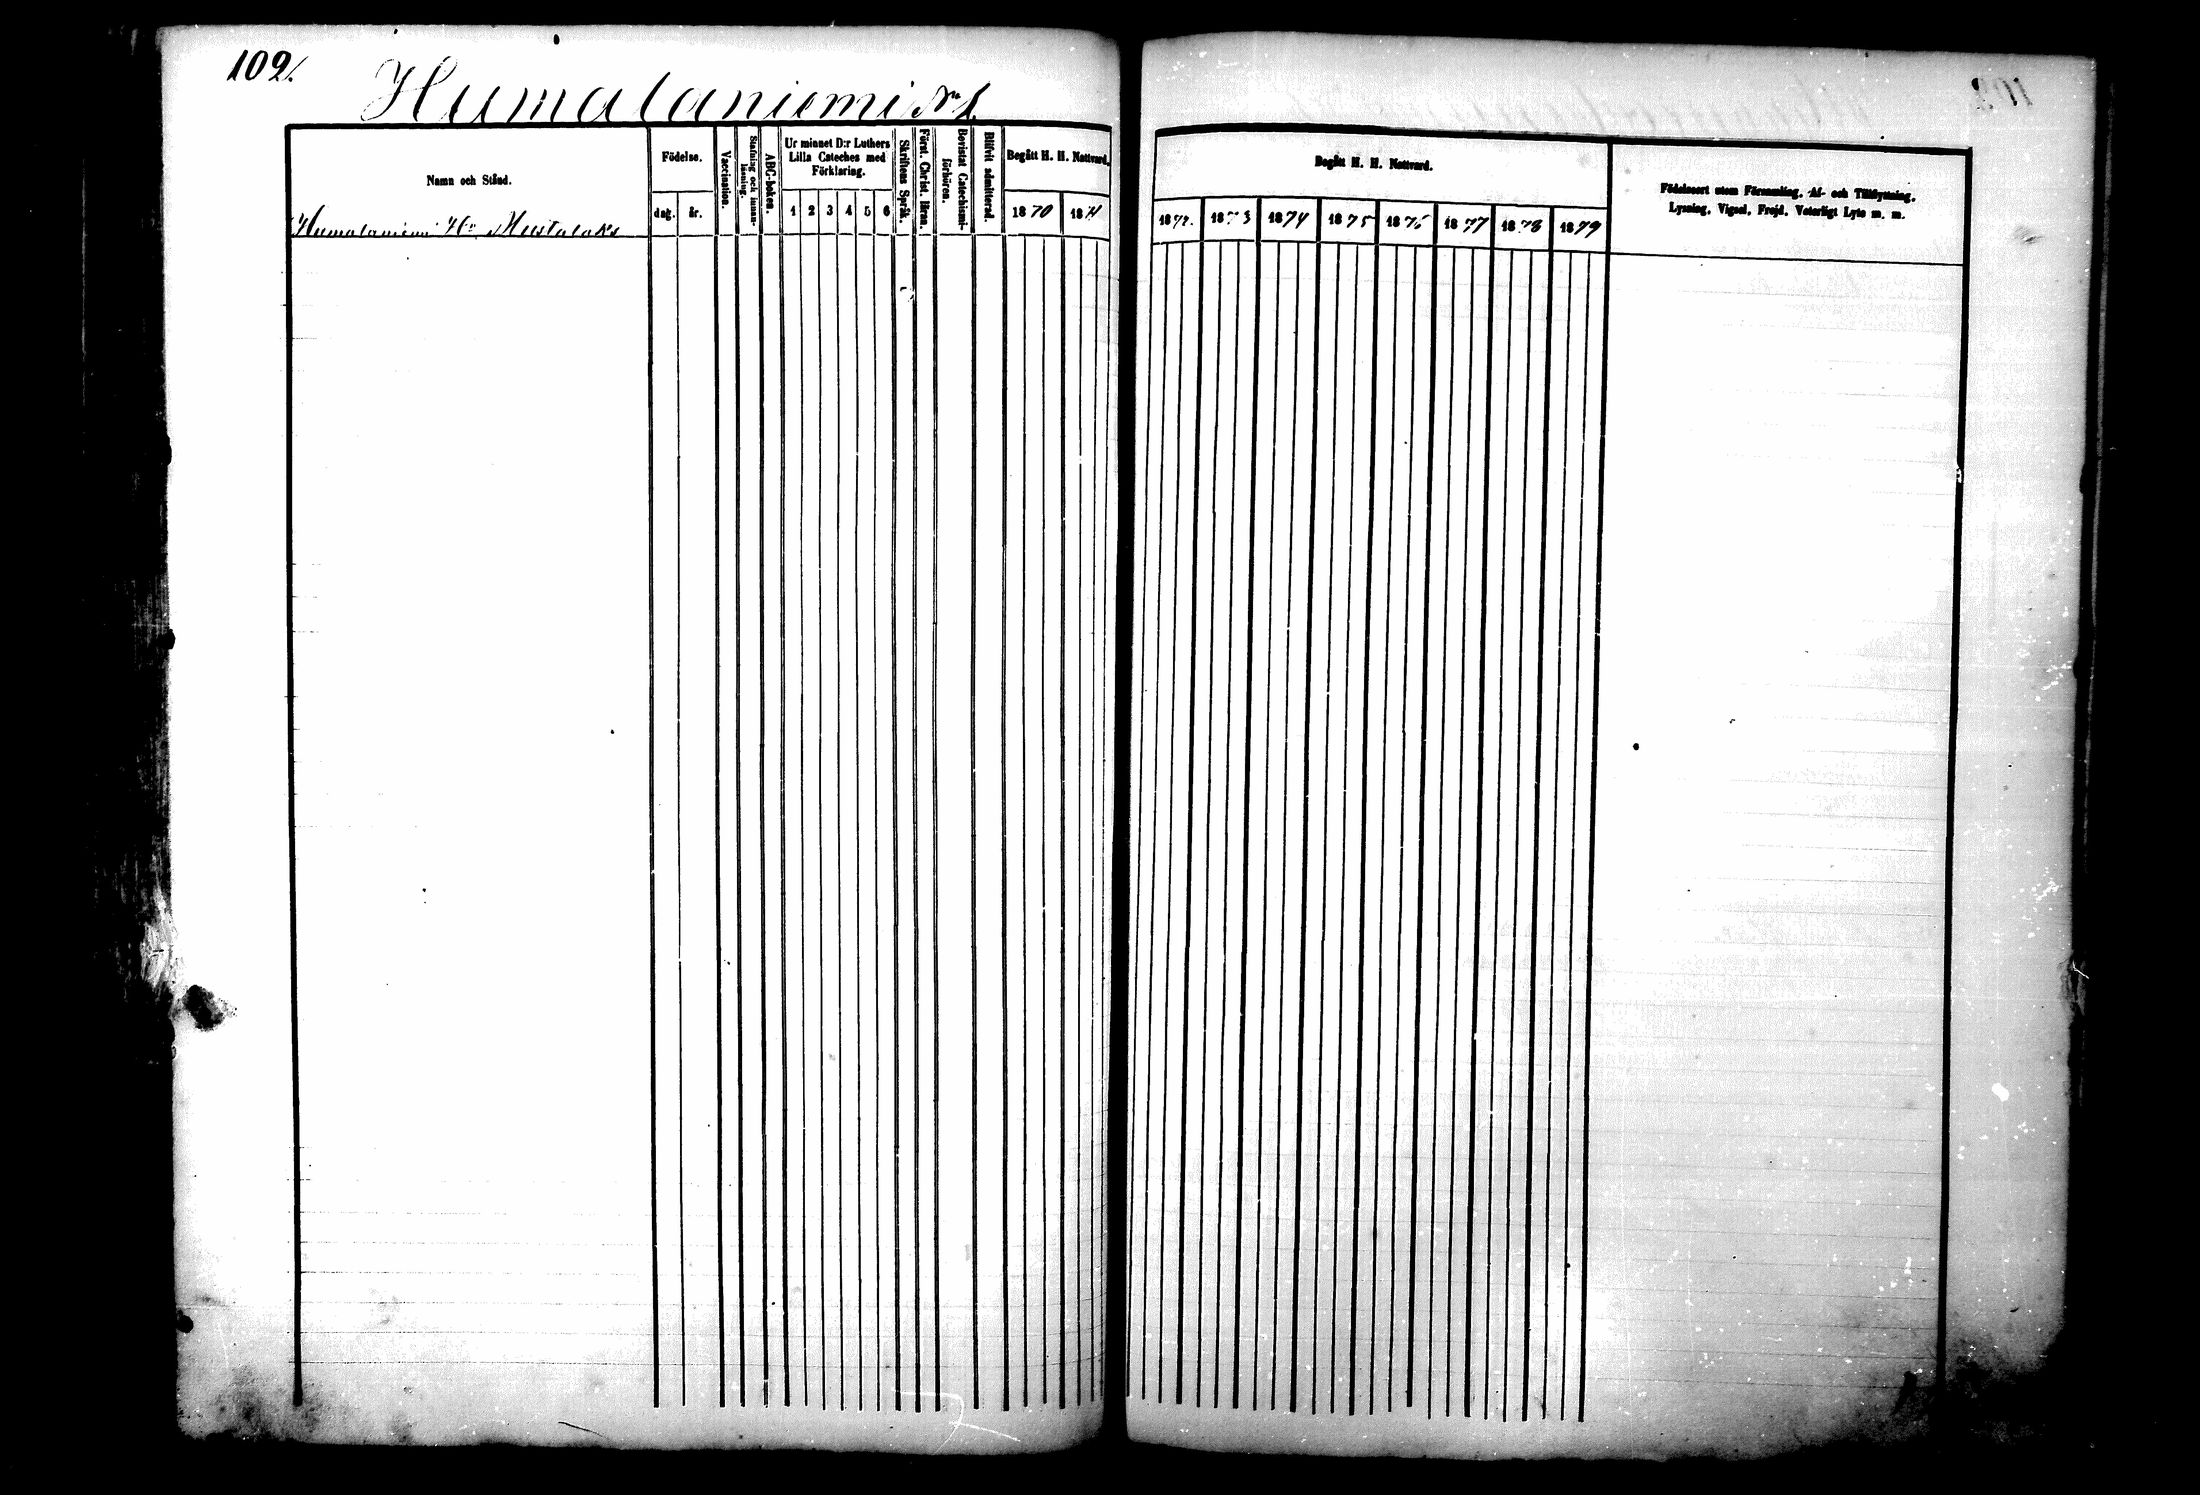 102.
Humalaniemi No 1.
Namn och Stånd.
Födelse.
dag. år.
Vaccination.
Stafning och innan-
läsning.
ABC-boken.
Ur minnet D:r Luthers
Lilla Cateches med
Förklaring.
1 2 3 4 5 6
Skriftens Språk.
Först. Christ. Lran.
Bevistat Catechismi-
förhören.
Blifvit admitterad.
Begått H. H. Nattvard.
1870 1871
Humalaniemi
Begått H. H. Nattvard.
1872. 1873 1874 1875 1876 1877 1878 1879
Födelseort utom Församling, Af- och Tillflyttning,
Lysning, Vigsel, Frejd, Veterligt Lyte m. m.